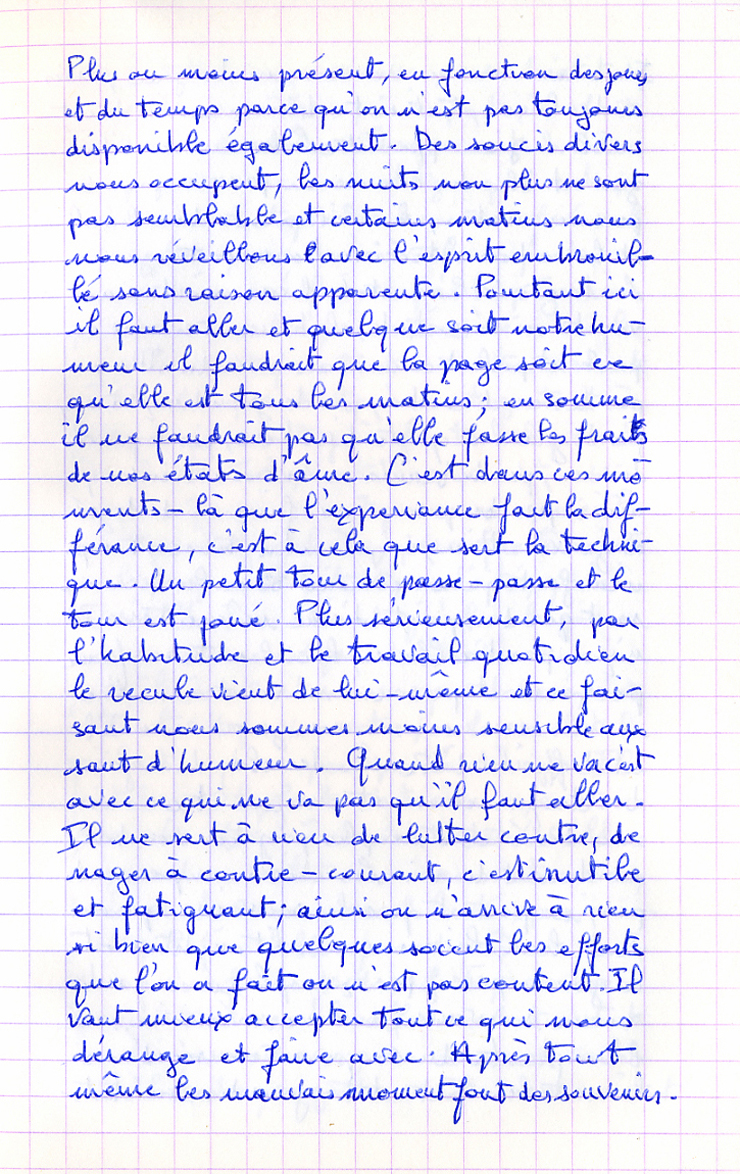 Plus ou moins présent, en fonction des jours
et du temps parce qu'on n'est pas toujours
disponible également. Des soucis divers
nous occupent, les nuits non plus ne sont
pas semblable et certains matins nous
nous réveillons avec l'esprit embrouil-
lé sans raison apparente. Pourtant ici
il faut aller et quelque soit notre hu-
meur il faudrait que la page soit ce
qu'elle est tous les matins; en somme
il ne faudrait pas qu'elle fasse les frais
de nos états d'âme. C'est dans ces mo
ments-là que l'expériance fait la dif-
férance, c'est à cela que sert la techni-
que. Un petit tour de passe-passe et le
tour est joué. Plus sérieusement, par
l'habitude et le travail quotidien
le recule vient de lui-même et ce fai-
sant nous sommes moins sensible aux
saut d'humeur. Quand rien ne va c'est
avec ce qui ne va pas qu'il faut aller.
Il ne sert à rien de lutter contre, de
nager à contre-courant, c'est inutile
et fatiguant; ainsi on n'arrive à rien
si bien que quelques soient les efforts
que l'on a fait on n'est pas content. Il
vaut mieux accepter tout ce qui nous
dérange et faire avec. Après tout
même les mauvais moment font des souvenirs.